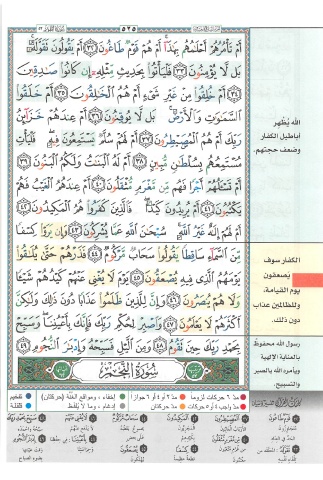 ٥٢٥
أَمْ تَأْمُرُهُمْ أَحْلَٰمُهُم بِهَٰذَآ أَمْ هُمْ قَوْمٌ طَاغُونَ ٣٢ أَمْ يَقُولُونَ تَقَوَّلَهُۥ
بَل لَّا يُؤْمِنُونَ ٣٣ فَلْيَأْتُوا۟ بِحَدِيثٍ مِّثْلِهِۦٓ إِن كَانُوا۟ صَٰدِقِينَ
٣٤ أَمْ خُلِقُوا۟ مِنْ غَيْرِ شَىْءٍ أَمْ هُمُ ٱلْخَٰلِقُونَ ٣٥ أَمْ خَلَقُوا۟
ٱلسَّمَٰوَٰتِ وَٱلْأَرْضَ بَل لَّا يُوقِنُونَ ٣٦ أَمْ عِندَهُمْ خَزَآئِنُ
رَبِّكَ أَمْ هُمُ ٱلْمُصَۣيْطِرُونَ ٣٧ أَمْ لَهُمْ سُلَّمٌ يَسْتَمِعُونَ فِيهِ فَلْيَأْتِ
مُسْتَمِعُهُم بِسُلْطَٰنٍ مُّبِينٍ ٣٨ أَمْ لَهُ ٱلْبَنَٰتُ وَلَكُمُ ٱلْبَنُونَ ٣٩
أَمْ تَسْـَٔلُهُمْ أَجْرًا فَهُم مِّن مَّغْرَمٍ مُّثْقَلُونَ ٤٠ أَمْ عِندَهُمُ ٱلْغَيْبُ فَهُمْ
يَكْتُبُونَ ٤١ أَمْ يُرِيدُونَ كَيْدًا فَٱلَّذِينَ كَفَرُوا۟ هُمُ ٱلْمَكِيدُونَ ٤٢
أَمْ لَهُمْ إِلَٰهٌ غَيْرُ ٱللَّهِ سُبْحَٰنَ ٱللَّهِ عَمَّا يُشْرِكُونَ ٤٣ وَإِن يَرَوْا۟ كِسْفًا
مِّنَ ٱلسَّمَآءِ سَاقِطًا يَقُولُوا۟ سَحَابٌ مَّرْكُومٌ ٤٤ فَذَرْهُمْ حَتَّىٰ يُلَٰقُوا۟
يَوْمَهُمُ ٱلَّذِى فِيهِ يُصْعَقُونَ ٤٥ يَوْمَ لَا يُغْنِى عَنْهُمْ كَيْدُهُمْ شَيْـًٔا
وَلَا هُمْ يُنصَرُونَ ٤٦ وَإِنَّ لِلَّذِينَ ظَلَمُوا۟ عَذَابًا دُونَ ذَٰلِكَ وَلَٰكِنَّ
أَكْثَرَهُمْ لَا يَعْلَمُونَ ٤٧ وَٱصْبِرْ لِحُكْمِ رَبِّكَ فَإِنَّكَ بِأَعْيُنِنَا وَسَبِّحْ
بِحَمْدِ رَبِّكَ حِينَ تَقُومُ ٤٨ وَمِنَ ٱلَّيْلِ فَسَبِّحْهُ وَإِدْبَٰرَ ٱلنُّجُومِ ٤٩
سُورَةُ النَّجْمِ
الله يُظهر
أباطيل الكفار
وضعف حجتهم.
الكفار سوف
يُصعقون
يوم القيامة،
وللظالمين عذاب
دون ذلك.
رسول الله محفوظ
بالعناية الإلهية
ويأمره الله بالصبر
والتسبيح.